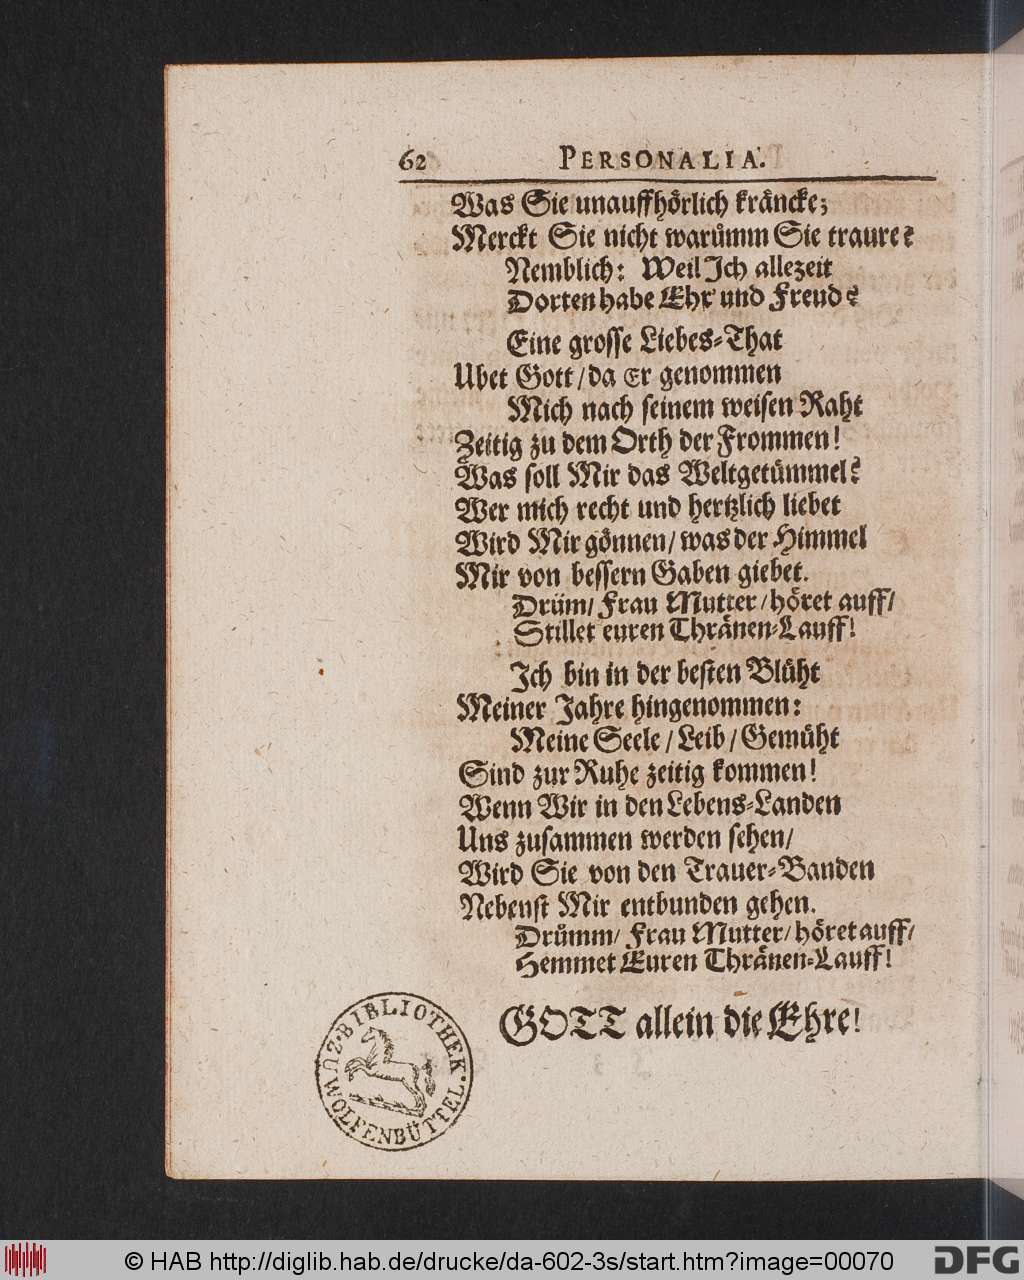 62 PERSONALIA.
Was Sie unauffhörlich kräncke;
Merckt Sie nicht warümm Sie traure?
Nemblich: Weil Ich allezeit
Dorten habe Ehr und Freud?
Eine grosse Liebes-That
Ubet Gott/da Er genommen
Mich nach seinem weisen Raht
Zeitig zu dem Orth der Frommen!
Was soll Mir das Weltgetümmel?
Wer mich recht und hertzlich liebet
Wird Mir gönnen/was der Himmel
Mir von bessern Gaben giebet.
Drüm/Frau Mutter/höret auff/
Stillet euren Thränen-Lauff!
Ich bin in der besten Blüht
Meiner Jahre hingenommen:
Meine Seele/Leib/Gemüht
Sind zur Ruhe zeitig kommen!
Wenn Wir in den Lebens-Landen
Uns zusammen werden sehen/
Wird Sie von den Trauer-Banden
Nebenst Mir entbunden gehen.
Drümm/Frau Mutter/höret auff/
Hemmet Euren Thränen-Lauff!
GOTT allein die Ehre!
BIBLIOTHEK. ZU WOLFENBÜTTEL.
© HAB http://diglib.hab.de/drucke/da-602-3s/start.htm?image=00070
DFG